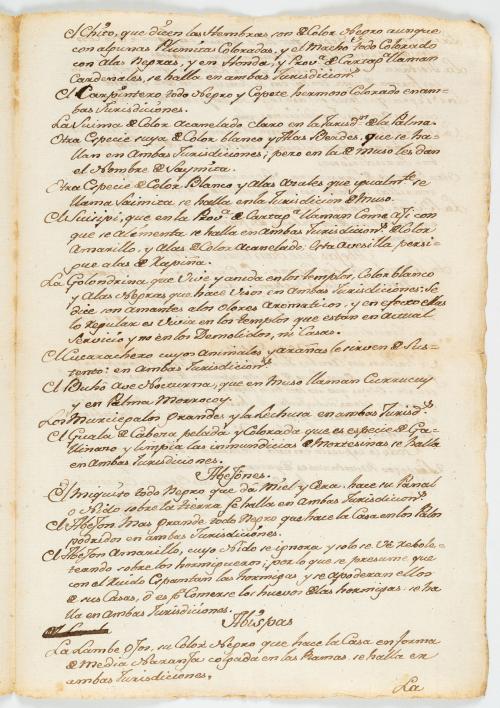 El Chito, que dicen las Hembras son de Color Negro aunque
con algunas Plumitas Coloradas, y el Macho todo Colorado
con alas Negras, y en Honda, y Prov.ª de Cartag.ª llaman
Cardenales, se halla en ambas Jurisdicion.s
El Carpintero todo Negro y Copete hermoso Colorado en am-
bas Jurisdiciones.
La Suima de Color Acanelado claro en la Jurisd.n de la Palma.
Otra Especie suya de Color blanco y Alas Berdes, que se ha-
llan en Ambas Jurisdiciones; pero en la de Muso les dan
el Nombre de Saymita.
Otra Especie de Color Blanco y alas Azales que igualm.te se
llama Saimita se halla en la Jurisdicion de Muso.
El Suispi, que en la Prov.ª de Cartag.ª llaman Come Aji con
que se alimenta se halla en ambas Jurisdicion.s de Color
Amarillo, y Alas de Color Acanelado: esta Avesilla persi-
gue a las de Rapiña.
La Golondrina, que Vive y anida en los templos, Color blanco
y Alas Negras que hace Visos en Ambas Jurisdiciones: Se
dice son amantes a los Olores Aromaticos, y en efecto ellas
lo regular es Vivir en los templos que estan en actual
Servicio y no en los Demolidos, ni Casas.
El Cucarachero cuyos Animales y arañas le sirven de Sus-
tento: en ambas Jurisdicion.s
El Buho Ave Nocturna, que en Muso llaman Currucuy
y en Palma Morrocoy.
Los Murciegalos Grandes y la Lechusa en ambas Jurisd.s
El Guala de Cabeza pelada y Colorada que es especie de Ga-
llinazo y limpia las inmundicias de Mortesinas se halla
en ambas Jurisdiciones.
Abejones.
El Miguito todo Negro que dá Miel y Cera, hace su Panal
o Nido sobre la tierra se halla en Ambas Jurisdicion.s
El Abejon Mas grande todo Negro que hace la Casa en los Palos
podridos en ambas Jurisdiciones.
El Abejon Amarillo, cuyo Nido se ignora y solo se Ve rebole-
teando sobre los hormigueros; por lo que se presume que
con el Ruido Espantan las hormigas y se apoderan ellos
de sus Casas, ó es p.ª Comerse los huevos de las hormigas se ha-
lla en ambas Jurisdiciones.
Abispas
La Lambe ojos, su Color Negro que hace la Casa en forma
de Media Naranja colgada en las Ramas se halla en
ambas Jurisdiciones.
La